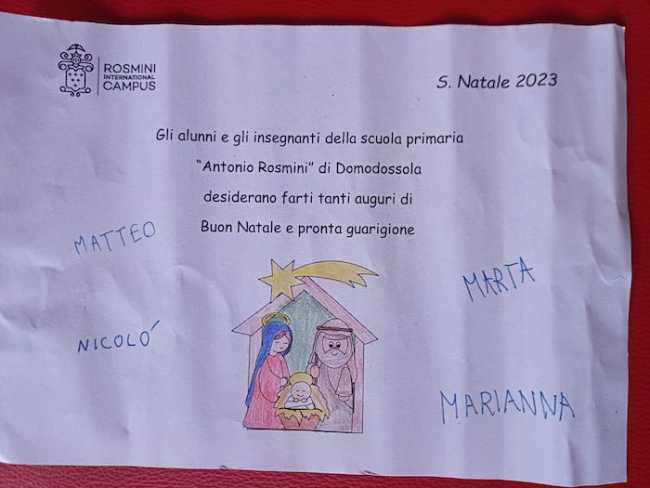 ROSMINI
INTERNATIONAL
CAMPUS
S. Natale 2023
Gli alunni e gli insegnanti della scuola primaria
"Antonio Rosmini" di Domodossola
desiderano farti tanti auguri di
Buon Natale e pronta guarigione
MATTEO
MARTA
NICOLO'
MARIANNA